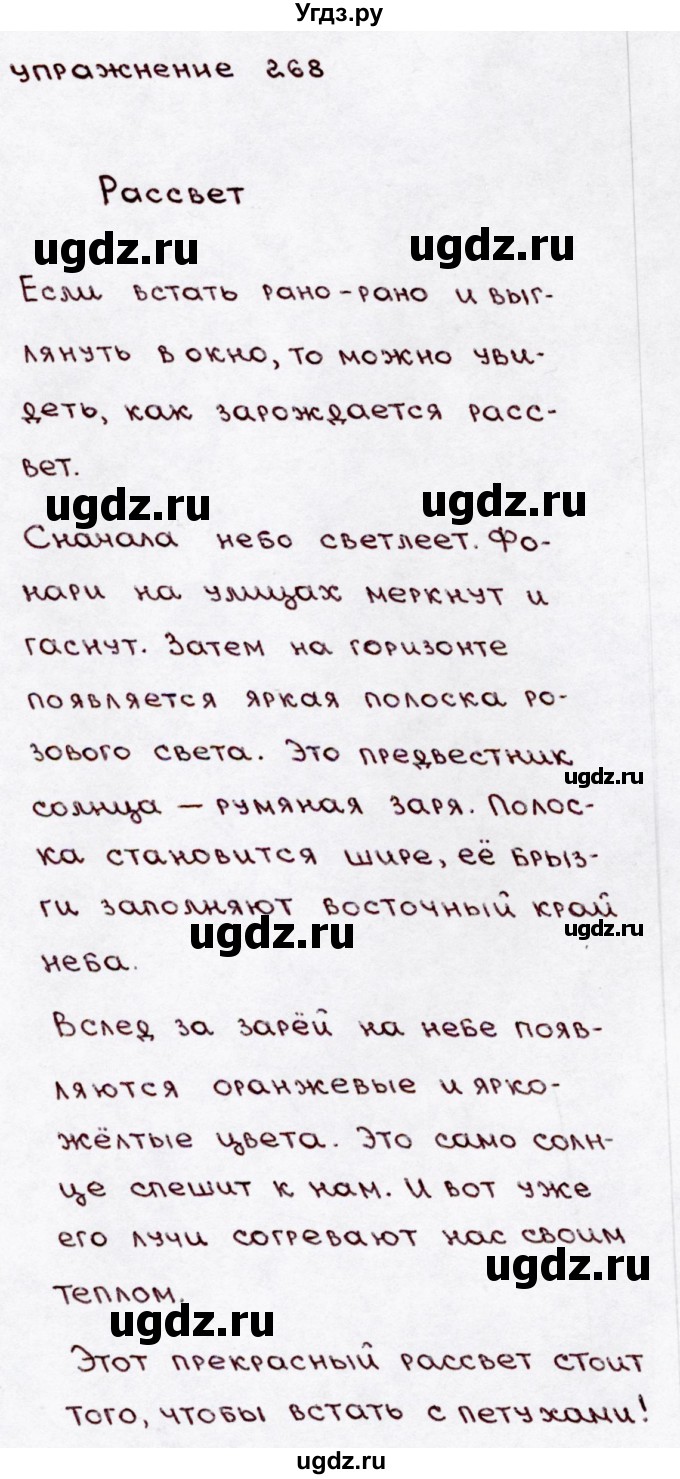 Угдз.ру
упражнение 268
Рассвет
ugdz.ru ugdz.ru
Если встать рано-рано и выг-
лянуть в окно, то можно уви-
деть, как зарождается расс-
вет.
ugdz.ru ugdz.ru
Сначала небо светлеет. Фо-
нари на улицах меркнут и
гаснут. Затем на горизонте
появляется яркая полоска ро-
зового света. Это предвестник
ugdz.ru
солнца — румяная заря. Полос-
ка становится шире, её брыз-
ги заполняют восточный край
ugdz.ru ugdz.ru
неба.
Вслед за зарёй на небе появ-
ляются оранжевые и ярко-
жёлтые цвета. Это само солн-
це спешит к нам. И вот уже
его лучи согревают нас своим
ugdz.ru
теплом.
ugdz.ru
Этот прекрасный рассвет стоит
того, чтобы встать с петухами!
ugdz.ru